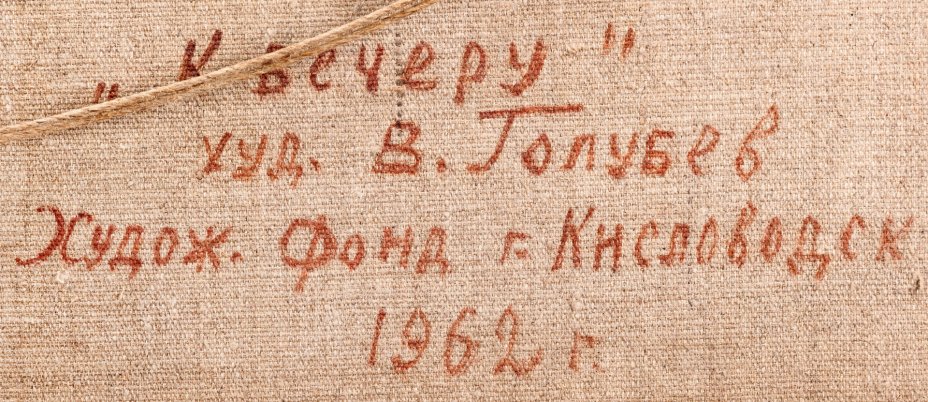 „К вечеру"
худ. В. Голубев
Худож. Фонд г. Кисловодск
1962 г.